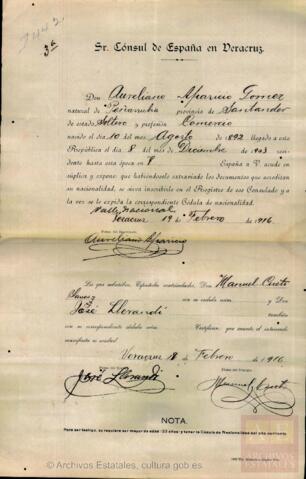 7442.
3ª
Sr. Cónsul de España en Veracruz.
Don Aureliano Aparicio Gomez
natural de Peñarrubia provincia de Santander
de estado, Soltero y profesión Comercio
nacido el día 10 del mes Agosto de 1892 llegado a esta
República el día 8 del mes de Diciembre de 1903
España a V. acude en
súplica y expone: que habiéndosele extraviado los documentos que acreditan
su nacionalidad, se sirva inscribirle en el Registro de ese Consulado y a
la vez se le expida la correspondiente Cédula de nacionalidad.
Valle Nacional
Veracruz 19 de Febrero de 1916
Firma del Interesado
Aureliano Aparicio
Los que subscriben, Españoles matriculados, Don Manuel Cueto
con su cédula núm. y Don
José Llerandi también
con su correspondiente cédula núm. Certifican: que cuanto el interesado
manifiesta es verdad.
Veracruz 18 de Febrero de 1916.
José Llerandi
Manuel Cueto
NOTA.
Para ser testigo, se requiere ser mayor de edad (23 años) y tener la Cédula de Nacionalidad del año corriente.
ARCHIVOS
ESTATALES
© Archivos Estatales, cultura.gob.es